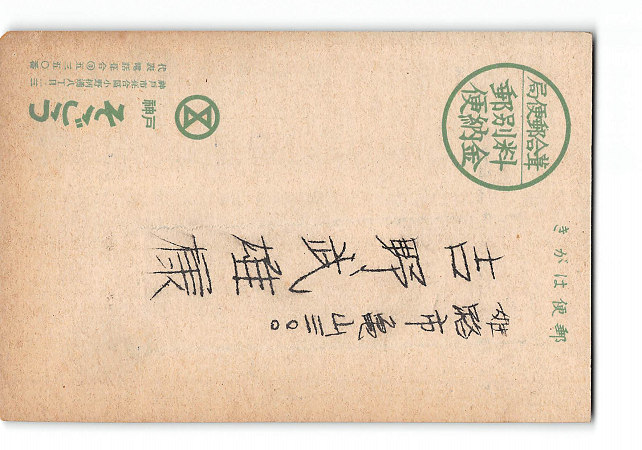 郵便はがき
葺合郵便局
料金
別納
郵便
姫路市亀山三〇〇
吉野武雄
神戸 そごう
神戸市葺合區小野柄通八丁目三
代表電話葺合 五三五〇番